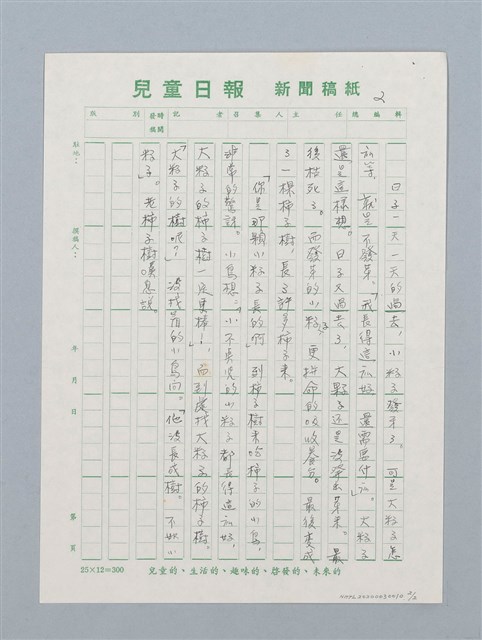 兒童日報 新聞稿紙
2
版 別 發稿時間 記者 召集人 主任 總編輯
駐地：
撰稿人：
年 月 日
第 頁
日子一天一天的過去，小粒子發芽了。可是大粒子怎
麼等，就是不發芽。「我長得這麼好，還需要什麼。」大粒子
還是這樣想。日子又過去了，大粒子還是沒發出芽來。最
後枯死了。而發芽的小粒子，更拚命的吸收養分。最後變成
了一棵柿子樹，長了許多柿子來。
「你是那顆小粒子長的啊」到柿子樹來吃柿子的小鳥，
的驚訝。小鳥想：「小不點兒的小粒子都長得這麼好，
大粒子的柿子樹一定更棒！」而到處找大粒子的柿子樹。
「大粒子的樹呢？」沒找著的小鳥問。「他沒長成樹。不如小
粒子。」老柿子樹嘆息說。
25×12=300
兒童的、生活的、趣味的、啓發的、未來的
2/2